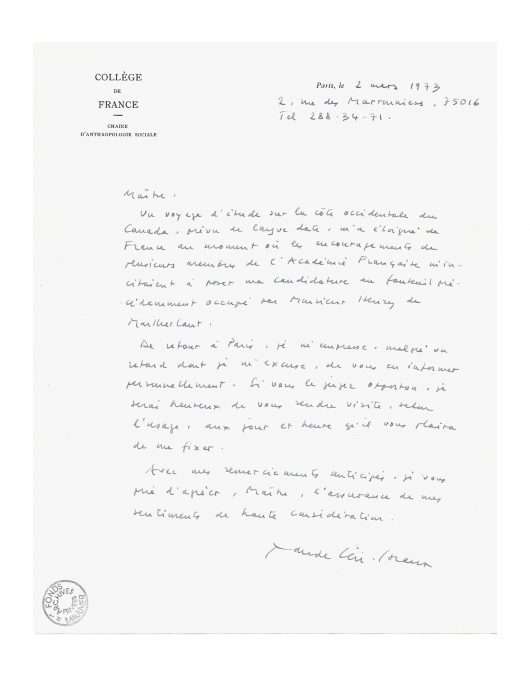 COLLÈGE
DE
FRANCE
CHAIRE
D'ANTHROPOLOGIE SOCIALE
Paris, le 2 mars 1973
2, rue des Marronniers, 75016
Tél 288-34-71.
Maître,
Un voyage d'étude sur la côte occidentale du
Canada, prévu de longue date, m'a éloigné de
France au moment où les encouragements de
plusieurs membres de l'Académie Française m'in-
citaient à poser ma candidature au fauteuil pré-
cédemment occupé par Monsieur Henry de
Montherlant.
De retour à Paris, je m'empresse, malgré un
retard dont je m'excuse, de vous en informer
personnellement. Si vous le jugez opportun, je
serai heureux de vous rendre visite, selon
l'usage, aux jour et heure qu'il vous plaira
de me fixer.
Avec mes remerciements anticipés, je vous
prie d'agréer, Maître, l'assurance de mes
sentiments de haute considération.
Claude Lévi-Strauss
FONDS
ARCHIVES